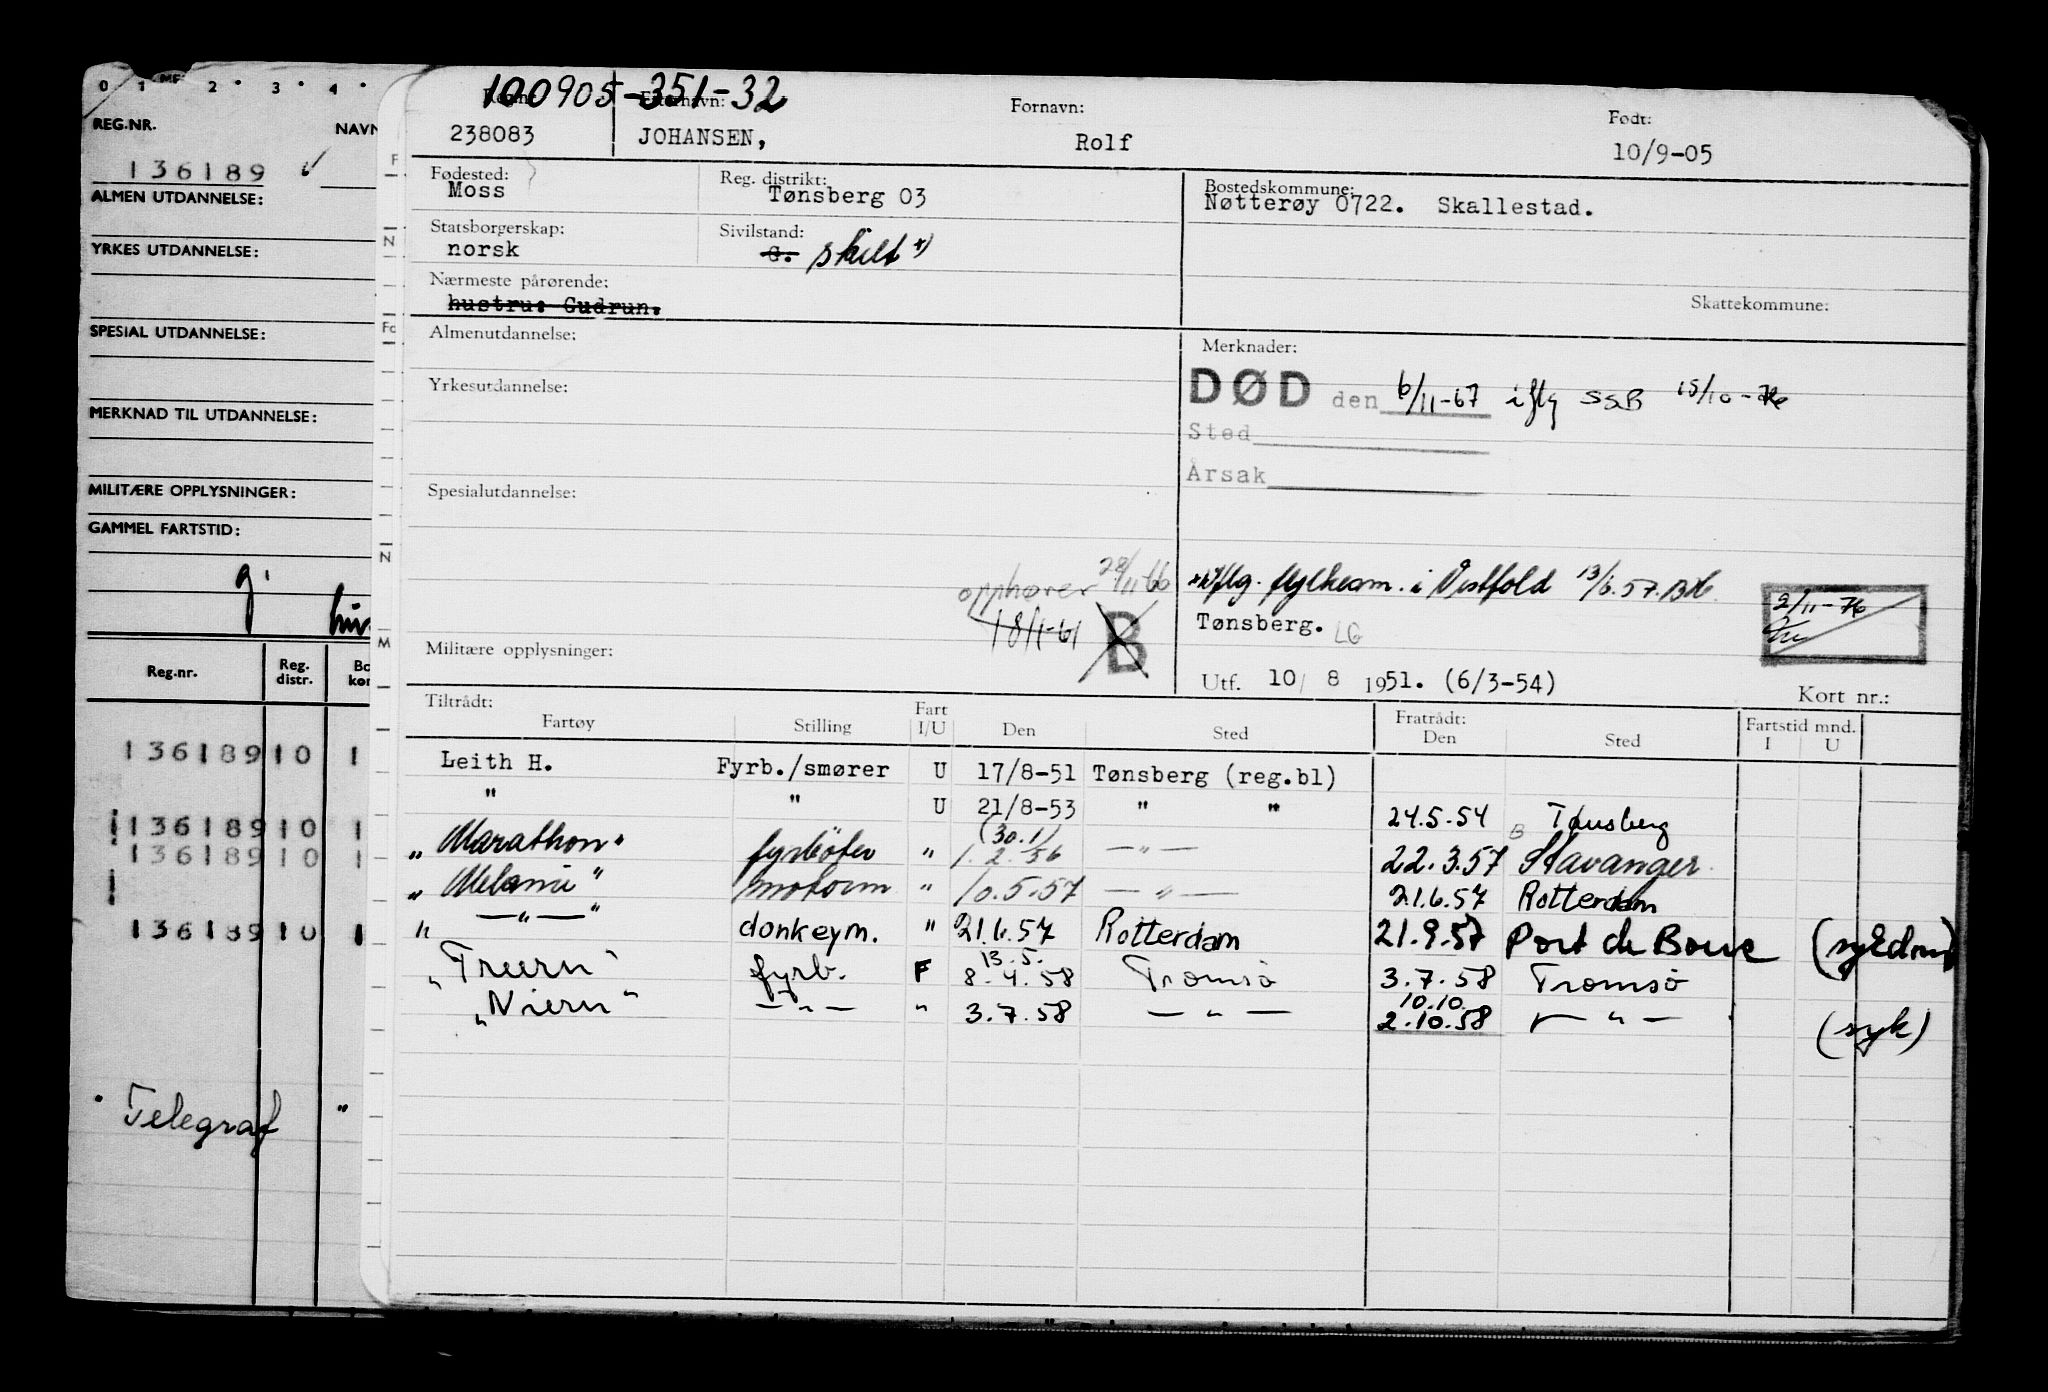 0 1 2 3 4
REG.NR. NAVN
136189
ALMEN UTDANNELSE:
YRKES UTDANNELSE:
SPESIAL UTDANNELSE:
MERKNAD TIL UTDANNELSE:
MILITÆRE OPPLYSNINGER:
GAMMEL FARTSTID:
g.
Reg.nr. Reg. distr.
136189 10 1
136189 10 1
136189 10 1
136189 10 1
Telegraf "
100905-351-32
Etternavn: Fornavn: Født:
238083 JOHANSEN, Rolf 10/9-05
Fødested: Reg. distrikt: Bostedskommune:
Moss Tønsberg 03 Nøtterøy 0722. Skallestad.
Statsborgerskap: Sivilstand:
norsk G. skilt x)
Nærmeste pårørende: Skattekommune:
hustru: Gudrun.
Almenutdannelse: Merknader:
DØD den 6/11-67 iflg SSB 15/10-76
Yrkesutdannelse:
Sted
Årsak
Spesialutdannelse:
opphører 28/11 66
18/1-61 B
x) iflg. fylkesm. i Vestfold 13/6.57.
Tønsberg. LG
2/11-76
Militære opplysninger:
Utf. 10/8 1951. (6/3-54) Kort nr.:
Tiltrådt: Fart Fratrådt: Fartstid mnd.
Fartøy Stilling I/U Den Sted Den Sted I U
Leith H. Fyrb./smører U 17/8-51 Tønsberg (reg.bl)
" " U 21/8-53 " " 24.5.54 Tønsberg
(30.1)
"Marathon" fyrbøter " 1.2.56 — " — 22.3.57 Stavanger.
"Melanie" motorm " 10.5.57 — " — 21.6.57 Rotterdam
" — " — " donkeym. " 21.6.57 Rotterdam 21.9.57 Port de Bouc (sykdom)
13.5.
"Treern" fyrb. F 8.4.58 Tromsø 3.7.58 Tromsø
10.10.
"Niern" — " — " 3.7.58 — " — 2.10.58 — " — (syk)